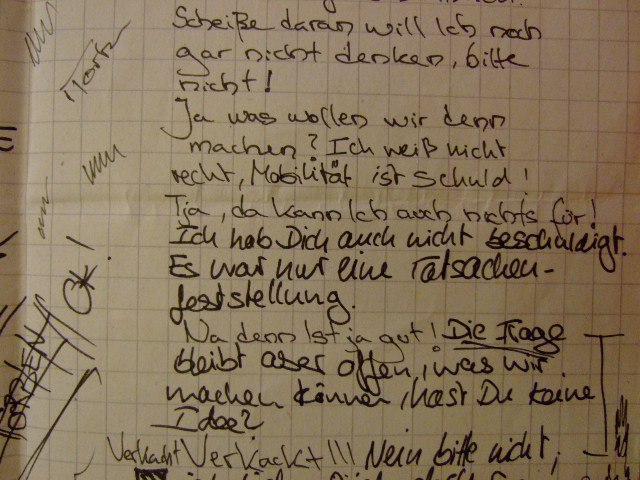 Scheiße daran will Ich noch
gar nicht denken, bitte
nicht!
Moritz
Ja was wollen wir denn
machen? Ich weiß nicht
recht, Mobilität ist schuld!
Tja, da kann Ich auch nichts für!
Ich hab Dich auch nicht beschuldigt.
Es war nur eine Tatsachen-
feststellung.
OK!
Na denn Ist ja gut! Die Frage
bleibt aber offen, was wir
machen können, hast Du keine
Idee?
Verkackt Verkackt!!! Nein bitte nicht,